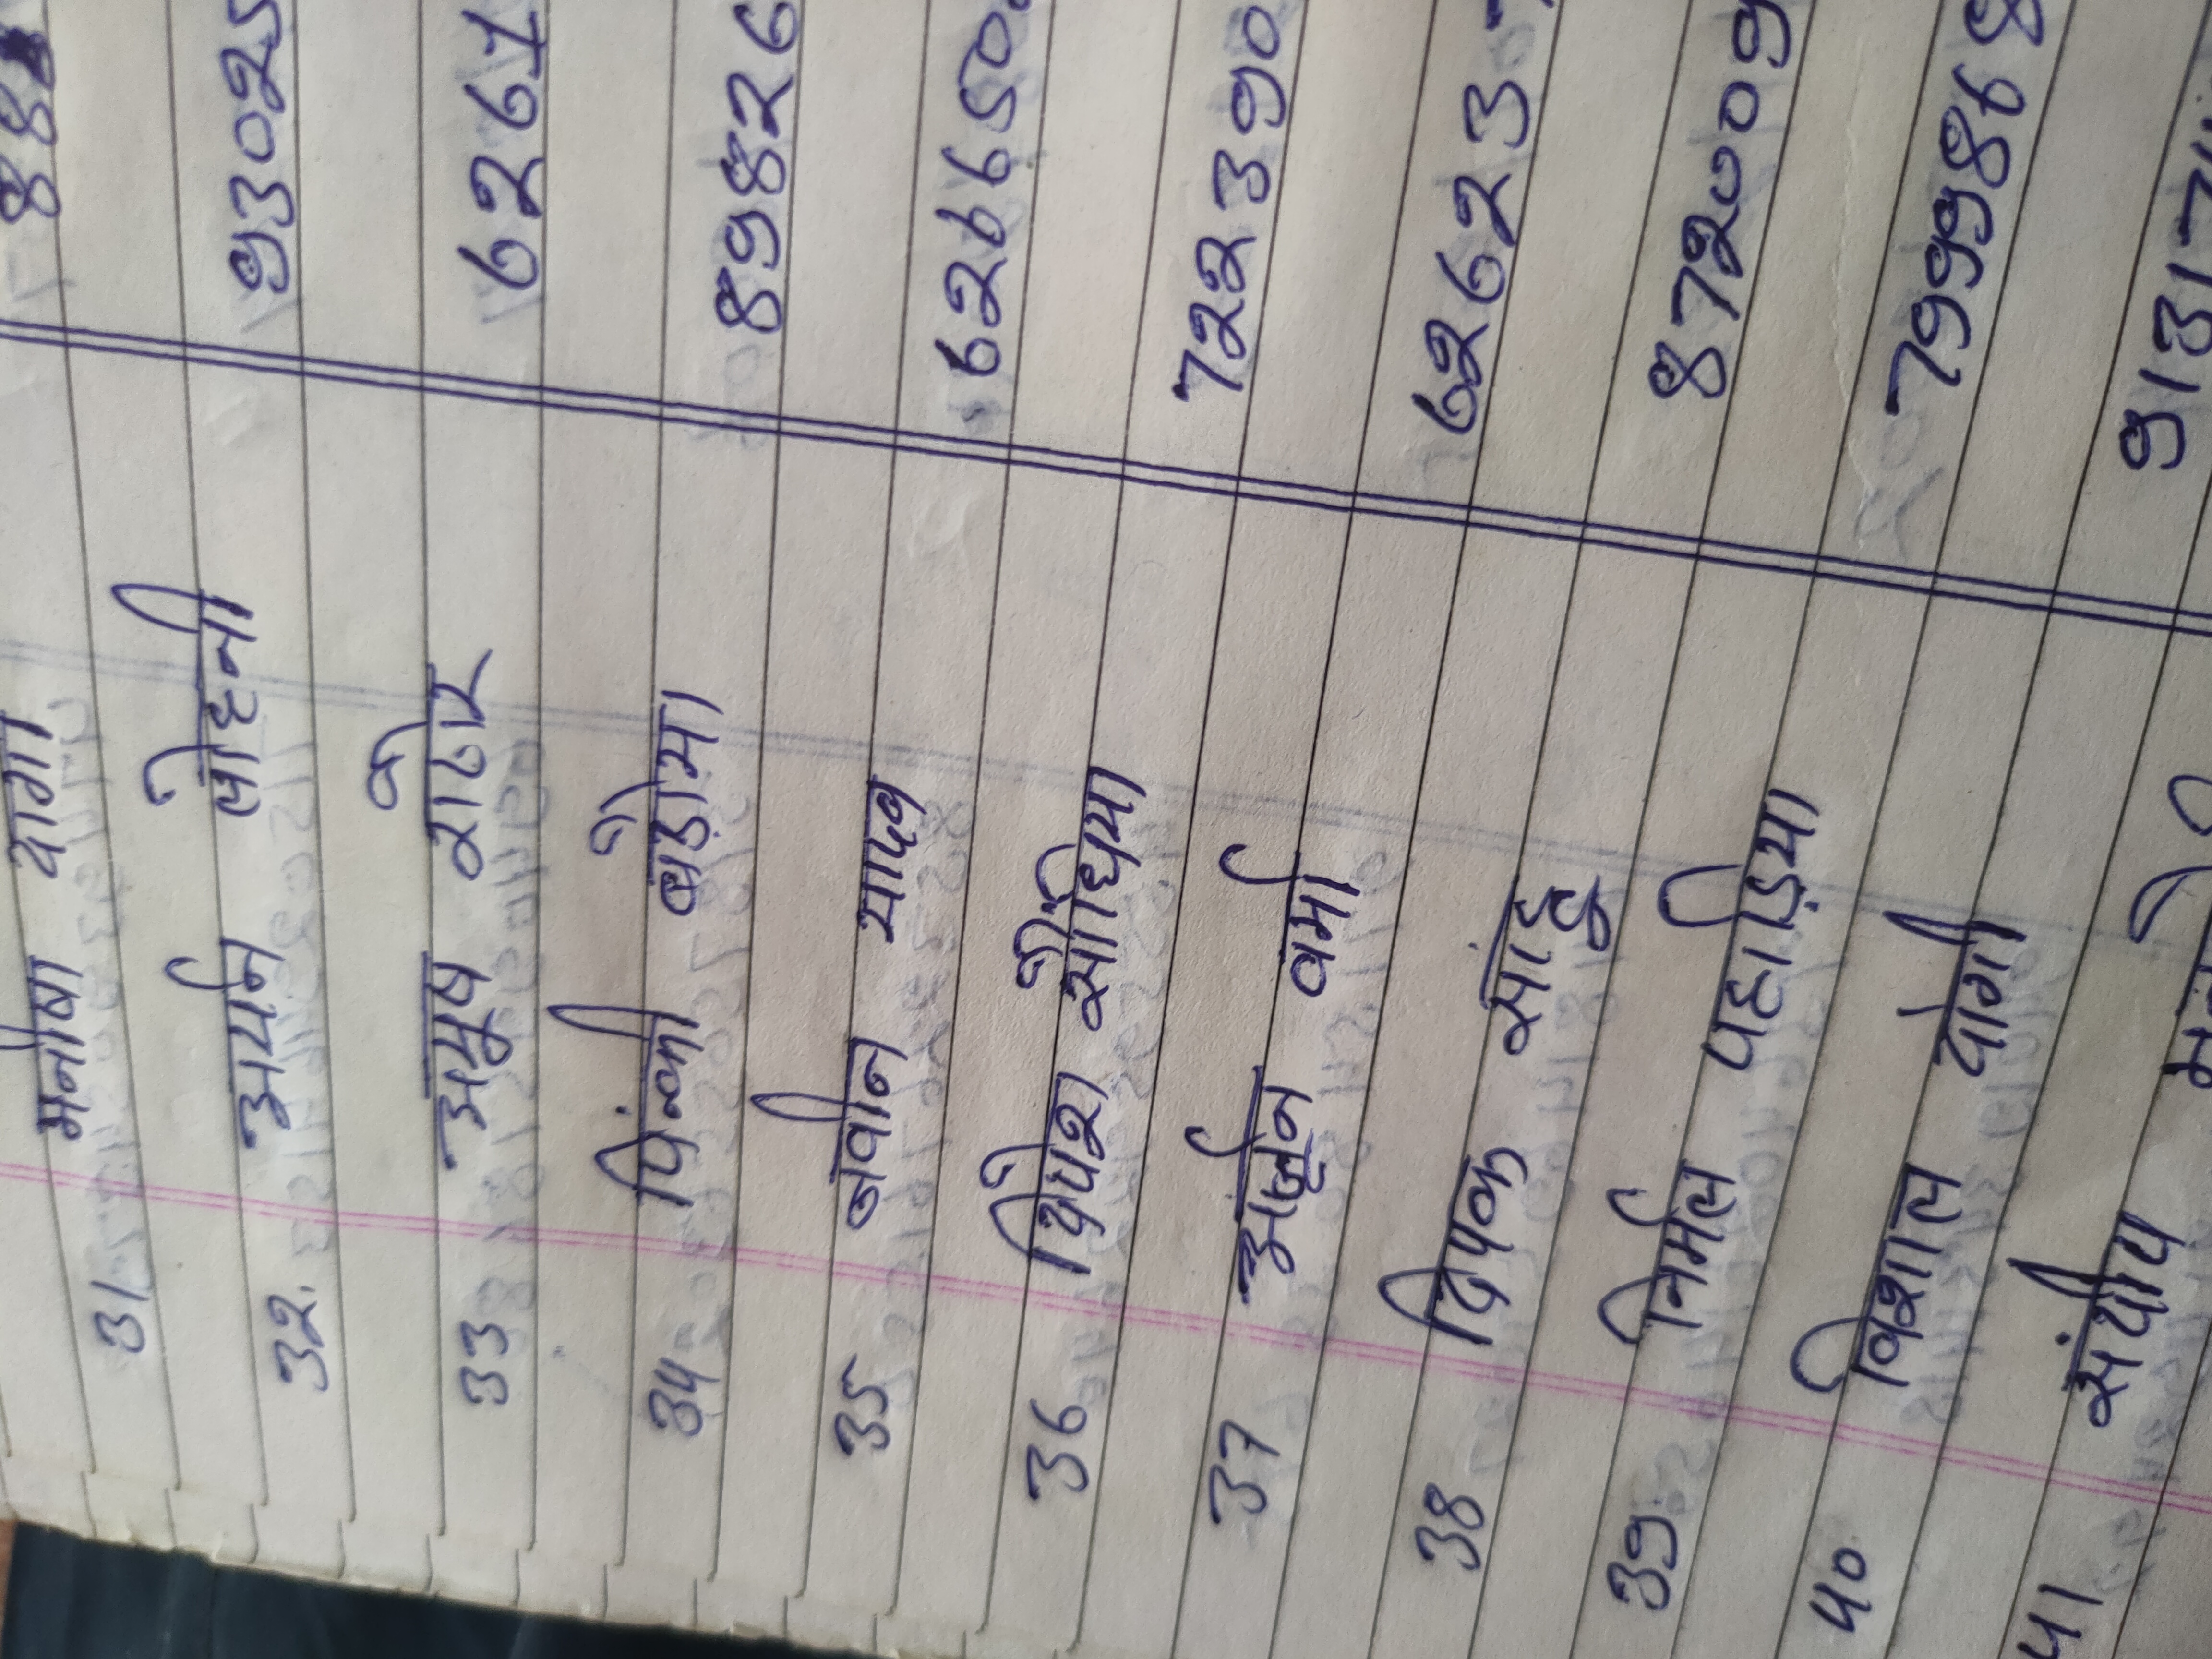 31 मनीषा योगी 882
32. अर्यन लोहनी 93025
33 अमूष राठोर 6261
34 पिंकी बेडामा 89826
35 नवीन यादव 626650
36 दिपेश सोंधिया 722390
37 अर्जून वर्मा 62623
38 दिपक साहू 872009
39. निर्मल पहाड़िया 799986
40 विशाल योगी 9131
41 संदीप